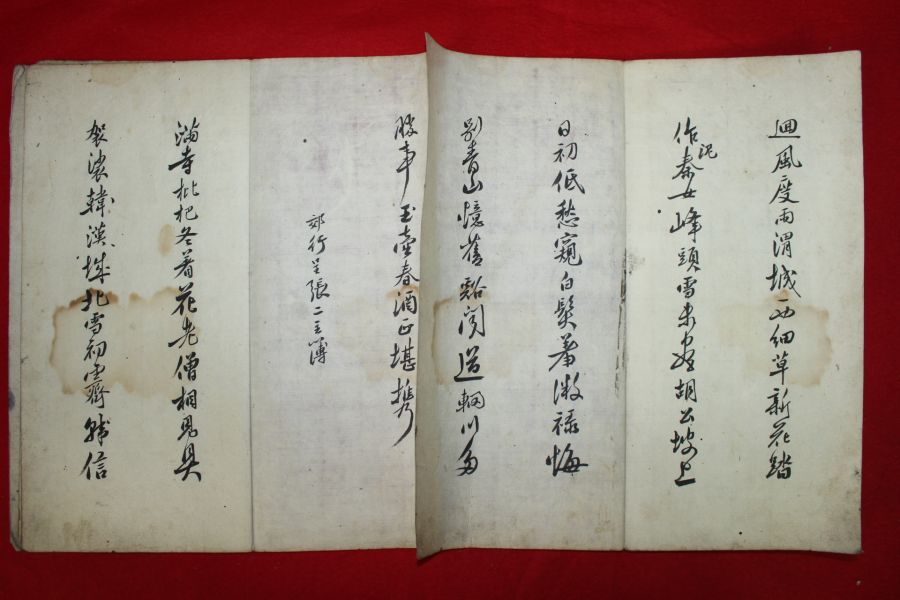 迴風度雨渭城西細草新花踏
作泥秦女峰頭雪未盡胡公坡上
日初低愁窺白髮羞微祿悔
別青山憶舊谿聞道輞川多
勝事玉壺春酒正堪携
郊行呈張二主簿
滿寺枇杷冬著花老僧相見具
袈裟韓漢城北雪初霽韓信